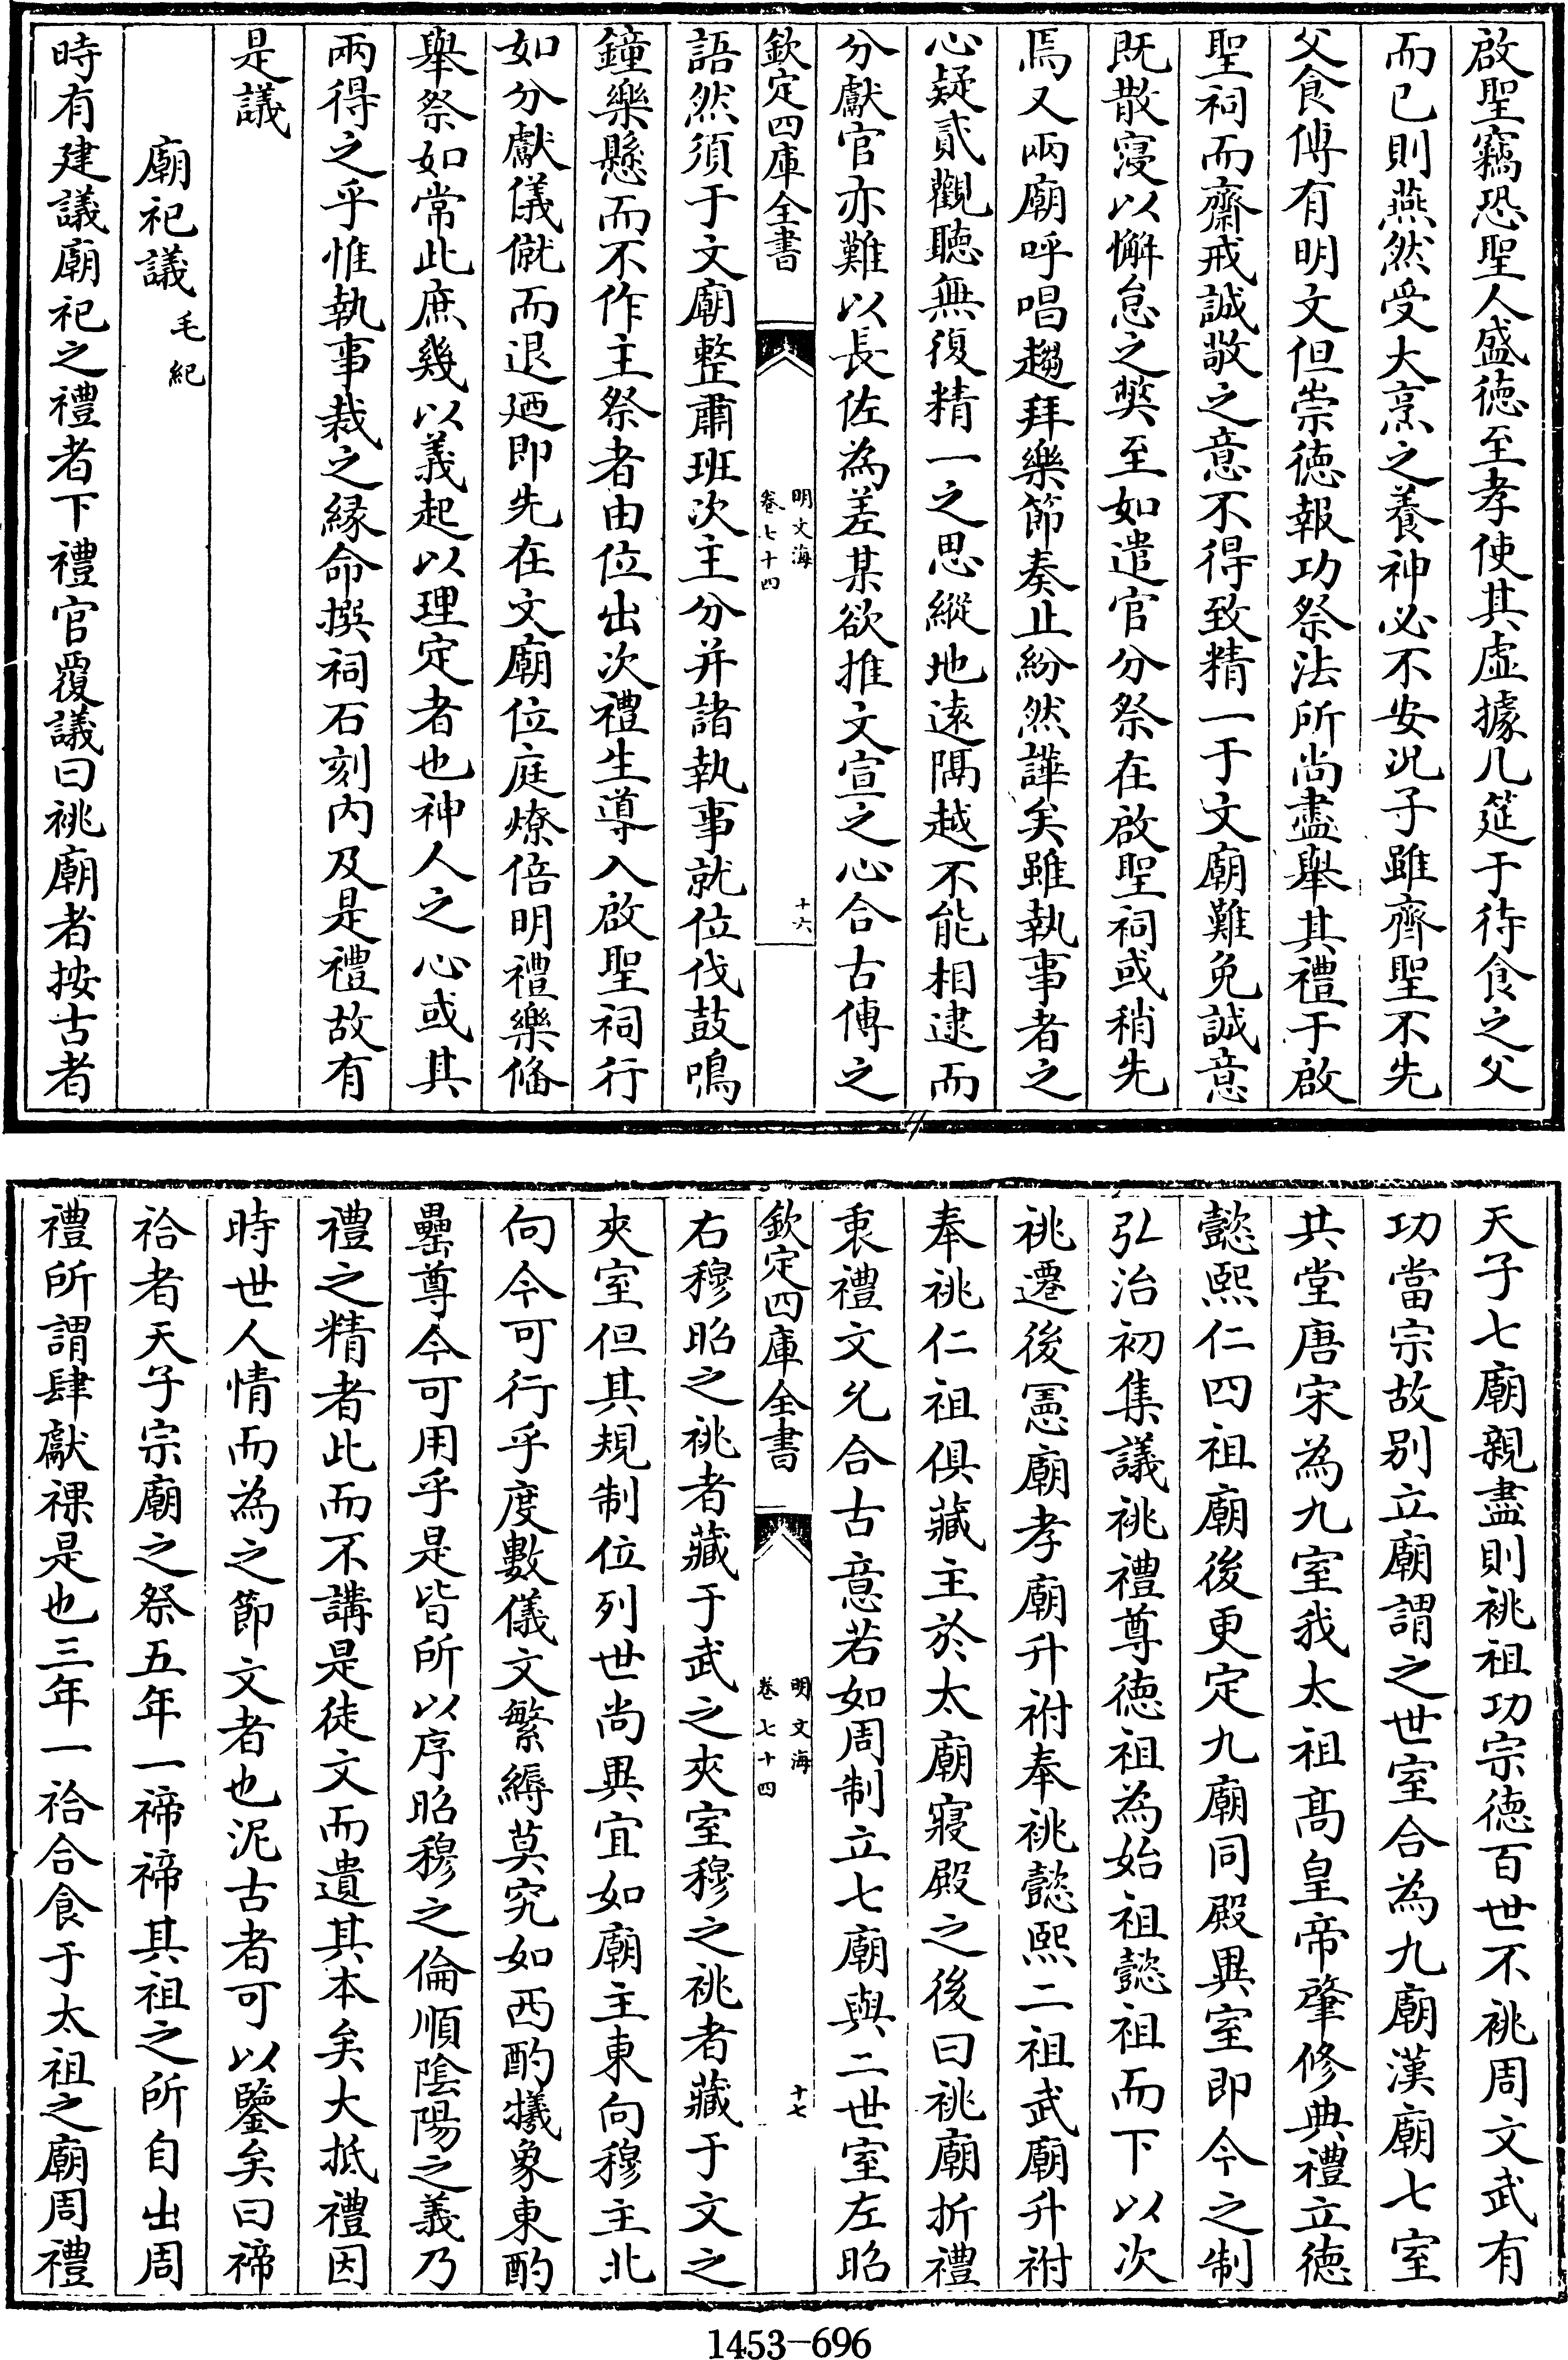 啟聖竊恐聖人盛徳至孝使其虛據几筵于待食之父
而已則燕然受大烹之養神必不安况子雖齊聖不先
父食傅有明文但崇徳報功祭法所尚盡舉其禮于啟
聖祠而齋戒誠敬之意不得致精一于文廟難免誠意
既散寖以懈怠之獘至如遣官分祭在啟聖祠或稍先
焉又兩廟呼唱趨拜樂節奏止紛然譁矣雖執事者之
心疑貳觀聽無復精一之思縱地遠隔越不能相逮而
分獻官亦難以長佐為差某欲推文宣之心合古傳之
欽定四庫全書
明文海
卷七十四
十六
語然須于文廟整肅班次主分并諸執事就位伐鼓鳴
鐘樂懸而不作主祭者由位出次禮生導入啟聖祠行
如分獻儀僦而退廼即先在文廟位庭燎倍明禮樂脩
舉祭如常此庶幾以義起以理定者也神人之心或其
兩得之乎惟執事裁之縁命撰祠石刻内及是禮故有
是議
廟祀議毛紀
時有建議廟祀之禮者下禮官覆議曰祧廟者按古者
天子七廟親盡則祧祖功宗徳百世不祧周文武有
功當宗故别立廟謂之世室合為九廟漢廟七室
共堂唐宋為九室我太祖髙皇帝肇修典禮立徳
懿熙仁四祖廟後更定九廟同殿異室即今之制
弘治初集議祧禮尊徳祖為始祖懿祖而下以次
祧遷後憲廟孝廟升祔奉祧懿熙二祖武廟升祔
奉祧仁祖俱藏主於太廟寢殿之後曰祧廟折禮
衷禮文允合古意若如周制立七廟與二世室左昭
欽定四庫全書
明文海
卷七十四
十七
右穆昭之祧者藏于武之夾室穆之祧者藏于文之
夾室但其規制位列世尚異宜如廟主東向穆主北
向今可行乎度數儀文繁縟莫究如西酌犧象東酌
罍尊今可用乎是皆所以序昭穆之倫順陰陽之義乃
禮之精者此而不講是徒文而遺其本矣大抵禮因
時世人情而為之節文者也泥古者可以鑒矣曰禘
祫者天子宗廟之祭五年一禘禘其祖之所自出周
禮所謂肆獻祼是也三年一祫合食于太祖之廟周禮
1453-696